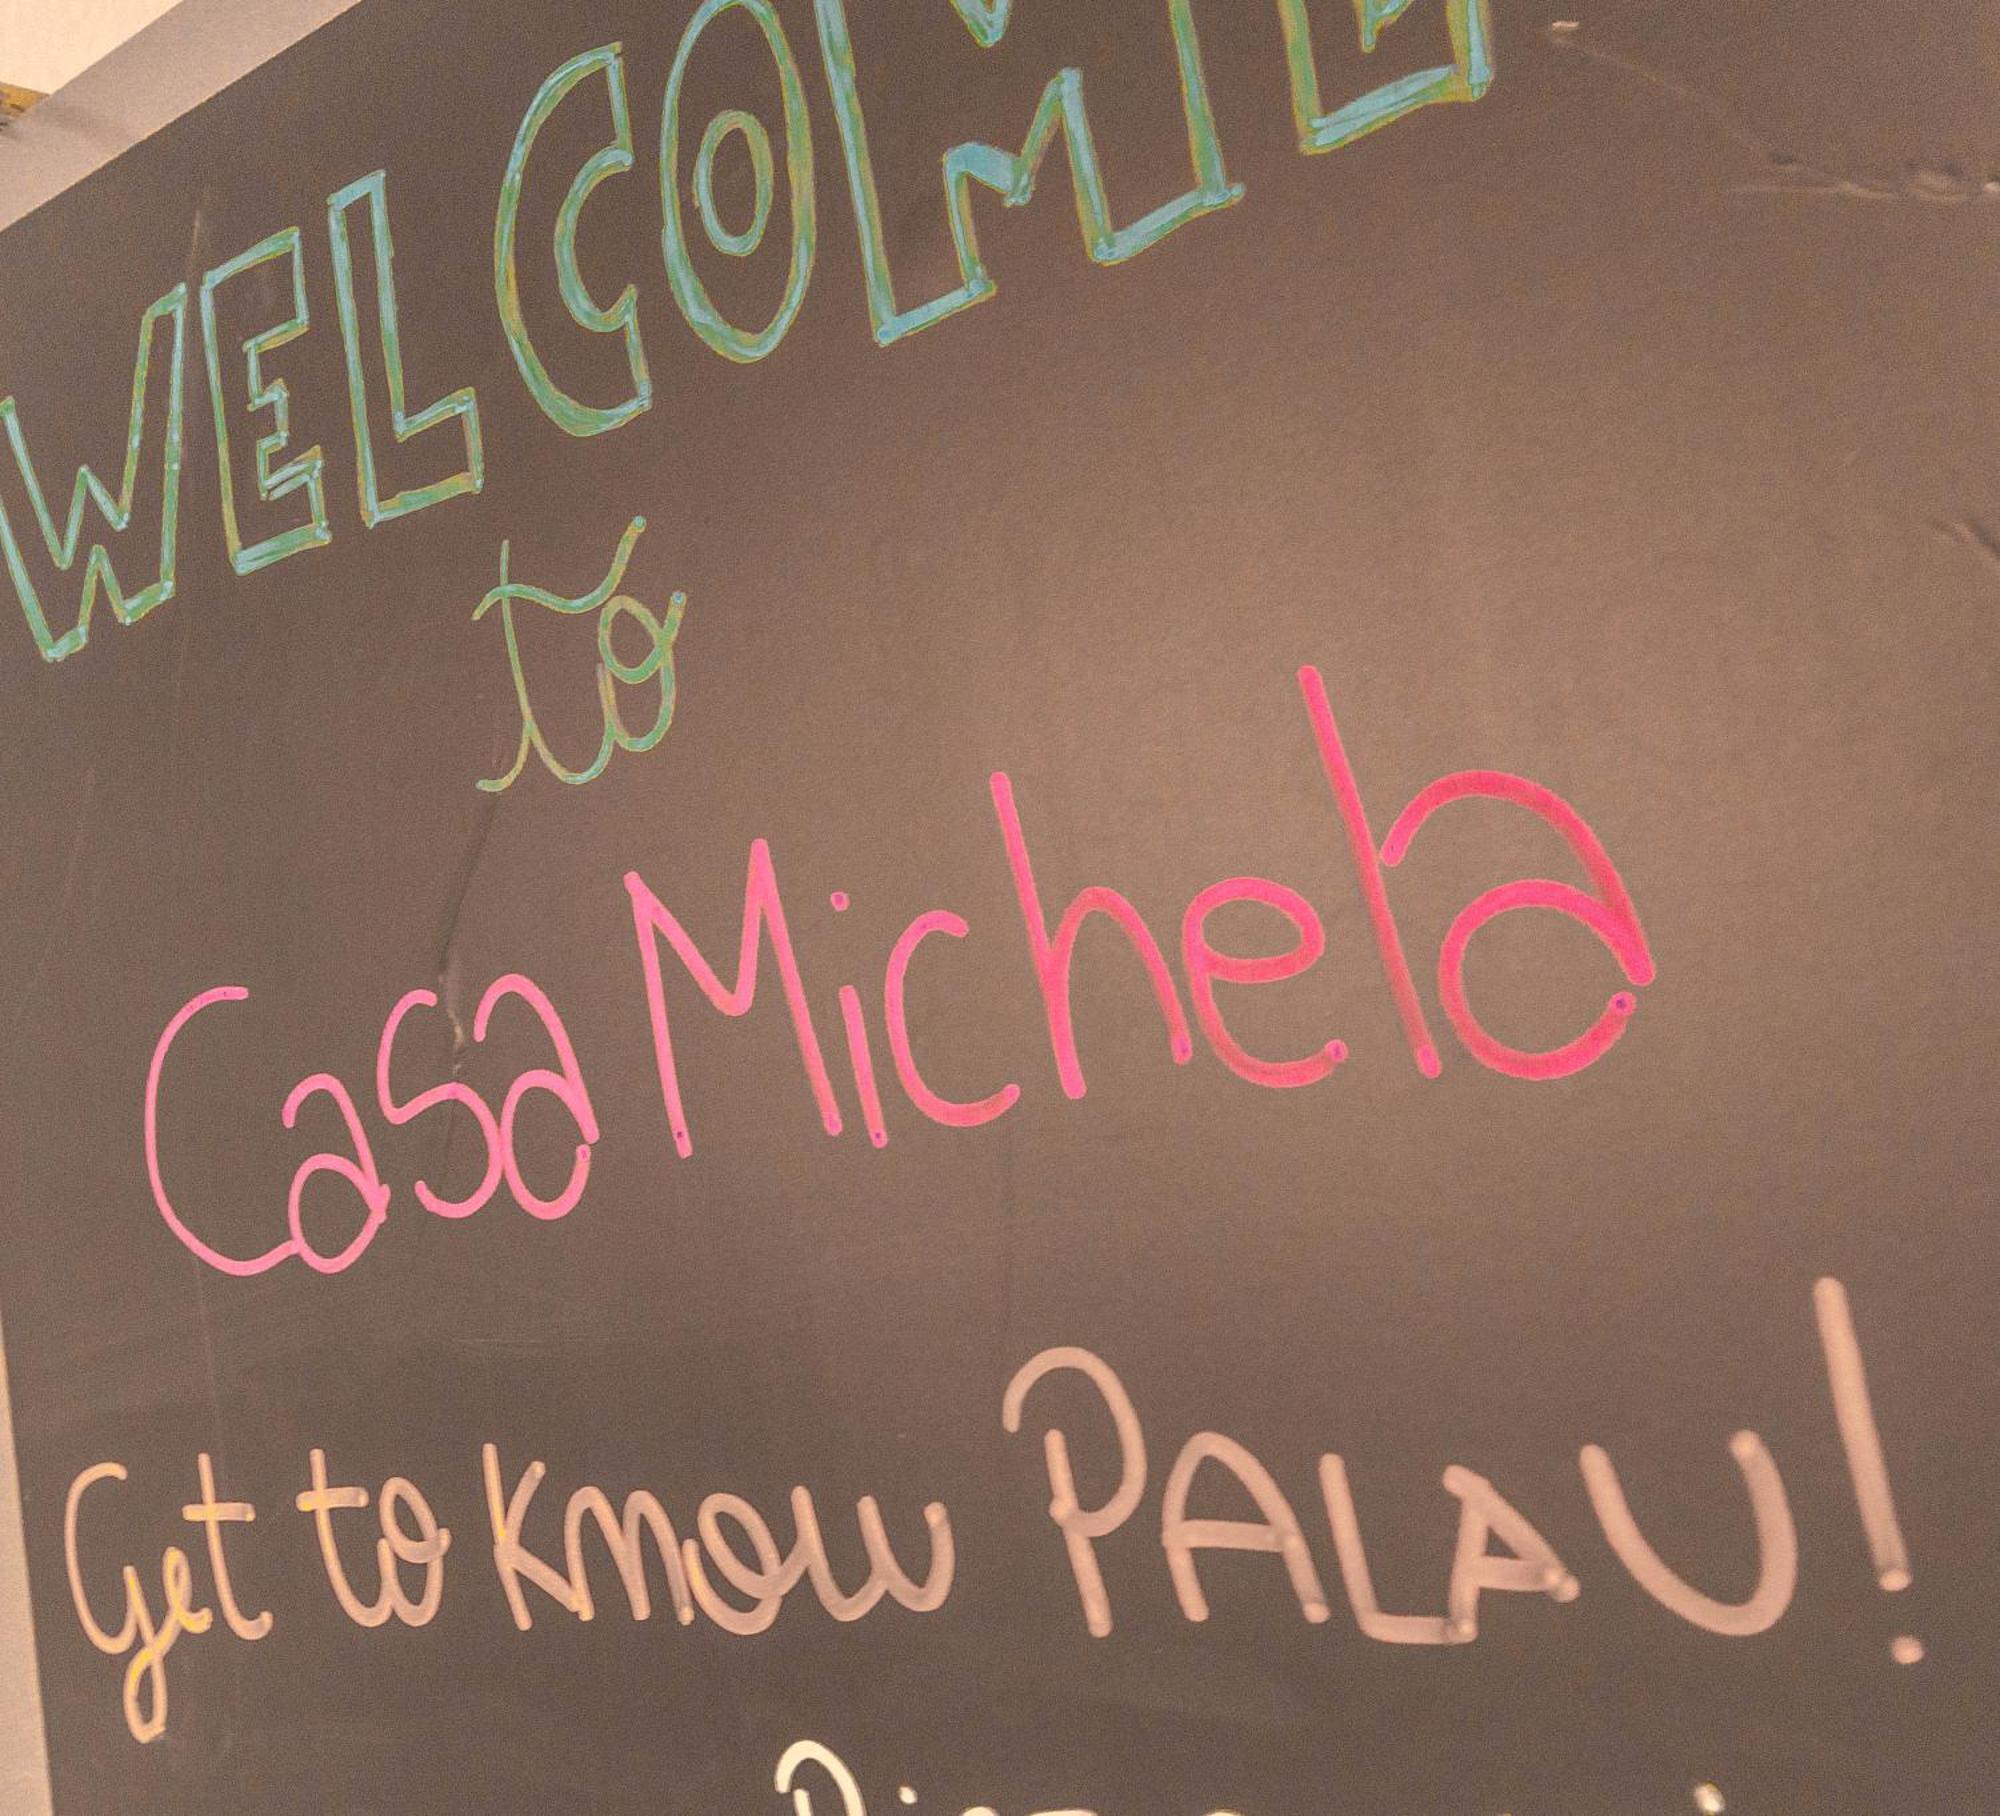 WELCOME
to
Casa Michela
Get to know PALAU!